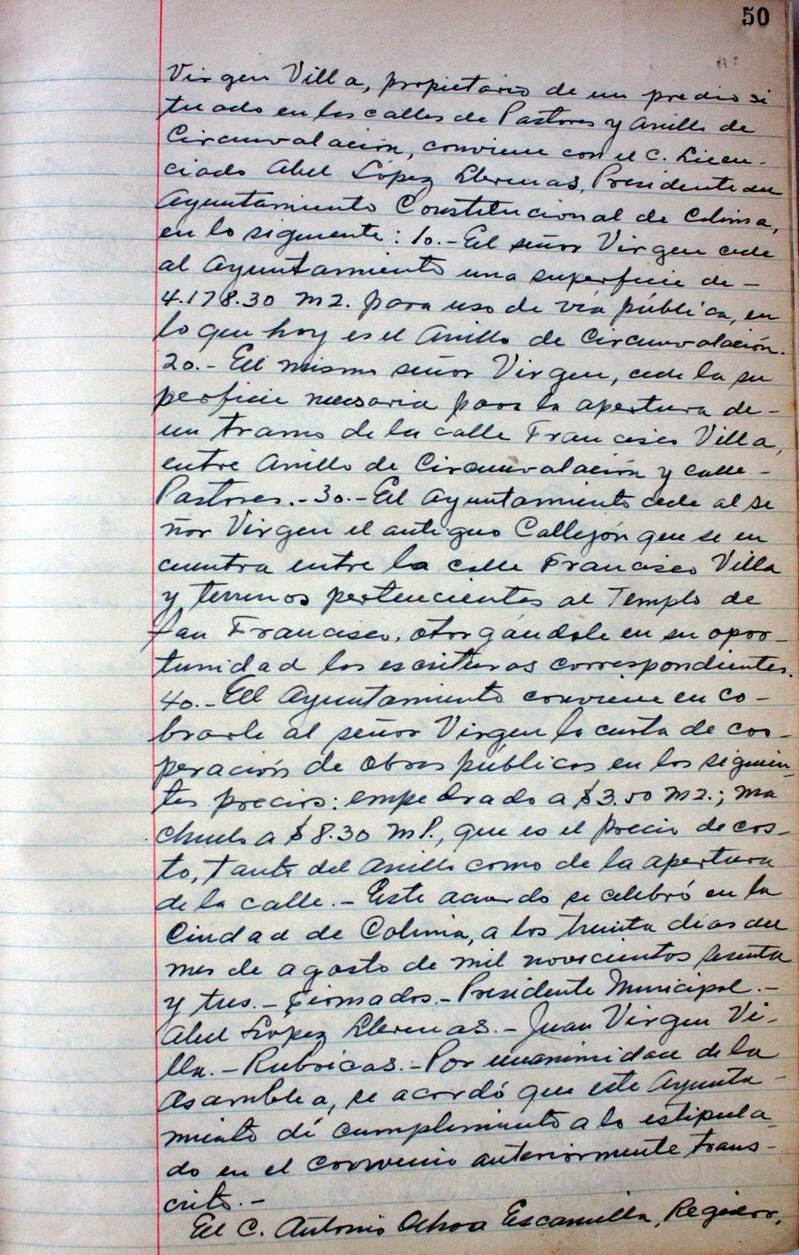 50
Virgen Villa, propietario de un predio si
tuado en las calles de Pastores y Anillo de
Circunvalación, conviene con el C. Licen-
ciado Abel López Llerenas, Presidente del
Ayuntamiento Constitucional de Colima,
en lo siguiente: 1o.- El señor Virgen cede
al Ayuntamiento una superficie de -
4.178.30 m2. para uso de vía pública, en
lo que hoy es el Anillo de Circunvalación.
2o.- El mismo señor Virgen, cede la su
perficie necesaria para la apertura de -
un tramo de la calle Francisco Villa,
entre Anillo de Circunvalación y calle -
Pastores.- 3o.- El Ayuntamiento cede al se
ñor Virgen el antiguo Callejón que se en
cuentra entre la calle Francisco Villa
y terrenos pertenecientes al Templo de
San Francisco, otorgándole en su opor-
tunidad las escrituras correspondientes.
4o.- El Ayuntamiento conviene en co-
brarle al señor Virgen la cuota de coo-
peración de obras públicas en los siguien-
tes precios: empedrado a $3.50 m2.; ma
chuelo a $8.30 ml., que es el precio de cos-
to, tanto del anillo como de la apertura
de la calle.- Este acuerdo se celebró en la
Ciudad de Colima, a los treinta días del
mes de agosto de mil novecientos sesenta
y tres.- Firmados.- Presidente Municipal.-
Abel López Llerenas.- Juan Virgen Vi-
lla.- Rubricas.- Por unanimidad de la
Asamblea, se acordó que este Ayunta-
miento dé cumplimiento a lo estipula-
do en el convenio anteriormente trans-
crito.-
El C. Antonio Ochoa Escamilla, Regidor,